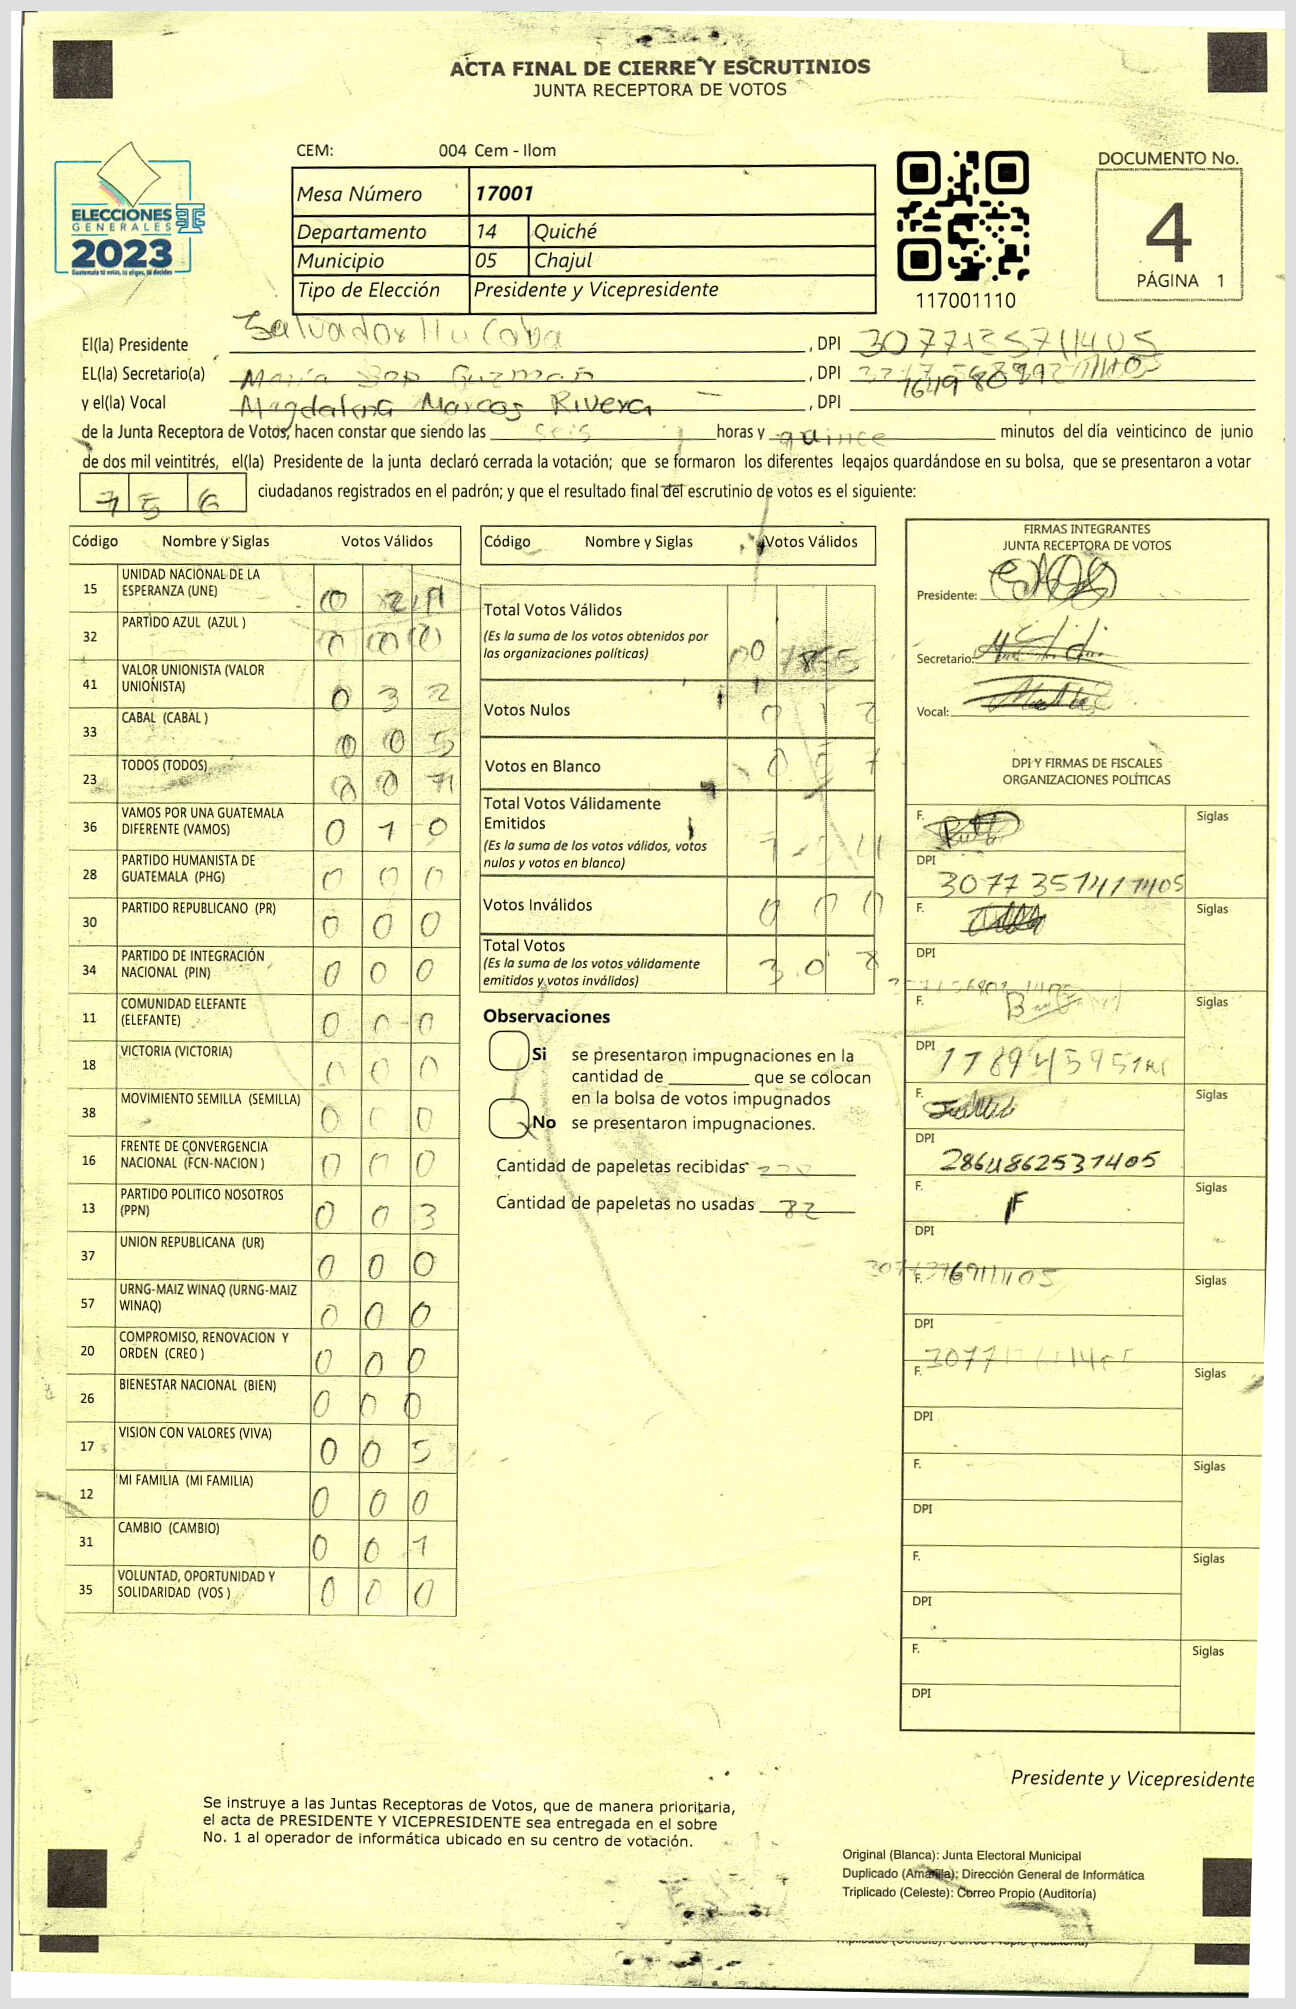 ACTA FINAL DE CIERRE Y ESCRUTINIOS
JUNTA RECEPTORA DE VOTOS
CEM: 004 Cem - Ilom
DOCUMENTO No.
4
PÁGINA 1
ELECCIONES
GENERALES
2023
Guatemala tú votas, tú eliges, tú decides
Mesa Número 17001
Departamento 14 Quiché
Municipio 05 Chajul
Tipo de Elección Presidente y Vicepresidente
117001110
El(la) Presidente Salvador , DPI
EL(la) Secretario(a) María Guzman , DPI
y el(la) Vocal Magdalena Marcos Rivera , DPI
de la Junta Receptora de Votos, hacen constar que siendo las seis horas y quince minutos del día veinticinco de junio
de dos mil veintitrés, el(la) Presidente de la junta declaró cerrada la votación; que se formaron los diferentes legajos guardándose en su bolsa, que se presentaron a votar
ciudadanos registrados en el padrón; y que el resultado final del escrutinio de votos es el siguiente:
Código Nombre y Siglas Votos Válidos
15 UNIDAD NACIONAL DE LA
ESPERANZA (UNE)
32 PARTIDO AZUL (AZUL ) 0 0 0
41 VALOR UNIONISTA (VALOR
UNIONISTA) 0 3 2
33 CABAL (CABAL ) 0 0 5
23 TODOS (TODOS)
36 VAMOS POR UNA GUATEMALA
DIFERENTE (VAMOS) 0 1 0
28 PARTIDO HUMANISTA DE
GUATEMALA (PHG) 0 0 0
30 PARTIDO REPUBLICANO (PR) 0 0 0
34 PARTIDO DE INTEGRACIÓN
NACIONAL (PIN) 0 0 0
11 COMUNIDAD ELEFANTE
(ELEFANTE) 0 0 0
18 VICTORIA (VICTORIA) 0 0 0
38 MOVIMIENTO SEMILLA (SEMILLA) 0 0 0
16 FRENTE DE CONVERGENCIA
NACIONAL (FCN-NACION ) 0 0 0
13 PARTIDO POLITICO NOSOTROS
(PPN) 0 0 3
37 UNION REPUBLICANA (UR) 0 0 0
57 URNG-MAIZ WINAQ (URNG-MAIZ
WINAQ) 0 0 0
20 COMPROMISO, RENOVACION Y
ORDEN (CREO ) 0 0 0
26 BIENESTAR NACIONAL (BIEN) 0 0 0
17 VISION CON VALORES (VIVA) 0 0 5
12 MI FAMILIA (MI FAMILIA) 0 0 0
31 CAMBIO (CAMBIO) 0 0 1
35 VOLUNTAD, OPORTUNIDAD Y
SOLIDARIDAD (VOS ) 0 0 0
Código Nombre y Siglas Votos Válidos
Total Votos Válidos
(Es la suma de los votos obtenidos por
las organizaciones políticas)
Votos Nulos 0 1 2
Votos en Blanco
Total Votos Válidamente
Emitidos
(Es la suma de los votos válidos, votos
nulos y votos en blanco)
Votos Inválidos 0 0 0
Total Votos
(Es la suma de los votos válidamente
emitidos y votos inválidos) 3 0 8
Observaciones
Si se presentaron impugnaciones en la
cantidad de que se colocan
en la bolsa de votos impugnados
No se presentaron impugnaciones.
Cantidad de papeletas recibidas
Cantidad de papeletas no usadas 82
FIRMAS INTEGRANTES
JUNTA RECEPTORA DE VOTOS
Presidente:
Secretario:
Vocal:
DPI Y FIRMAS DE FISCALES
ORGANIZACIONES POLÍTICAS
F. Siglas
DPI
F. Siglas
DPI
F. Siglas
DPI
F. Siglas
DPI 2864862531405
F. Siglas
DPI
F. Siglas
DPI
F. Siglas
DPI
F. Siglas
DPI
F. Siglas
DPI
F. Siglas
DPI
Presidente y Vicepresidente
Se instruye a las Juntas Receptoras de Votos, que de manera prioritaria,
el acta de PRESIDENTE Y VICEPRESIDENTE sea entregada en el sobre
No. 1 al operador de informática ubicado en su centro de votación.
Original (Blanca): Junta Electoral Municipal
Duplicado (Amarilla): Dirección General de Informática
Triplicado (Celeste): Correo Propio (Auditoría)